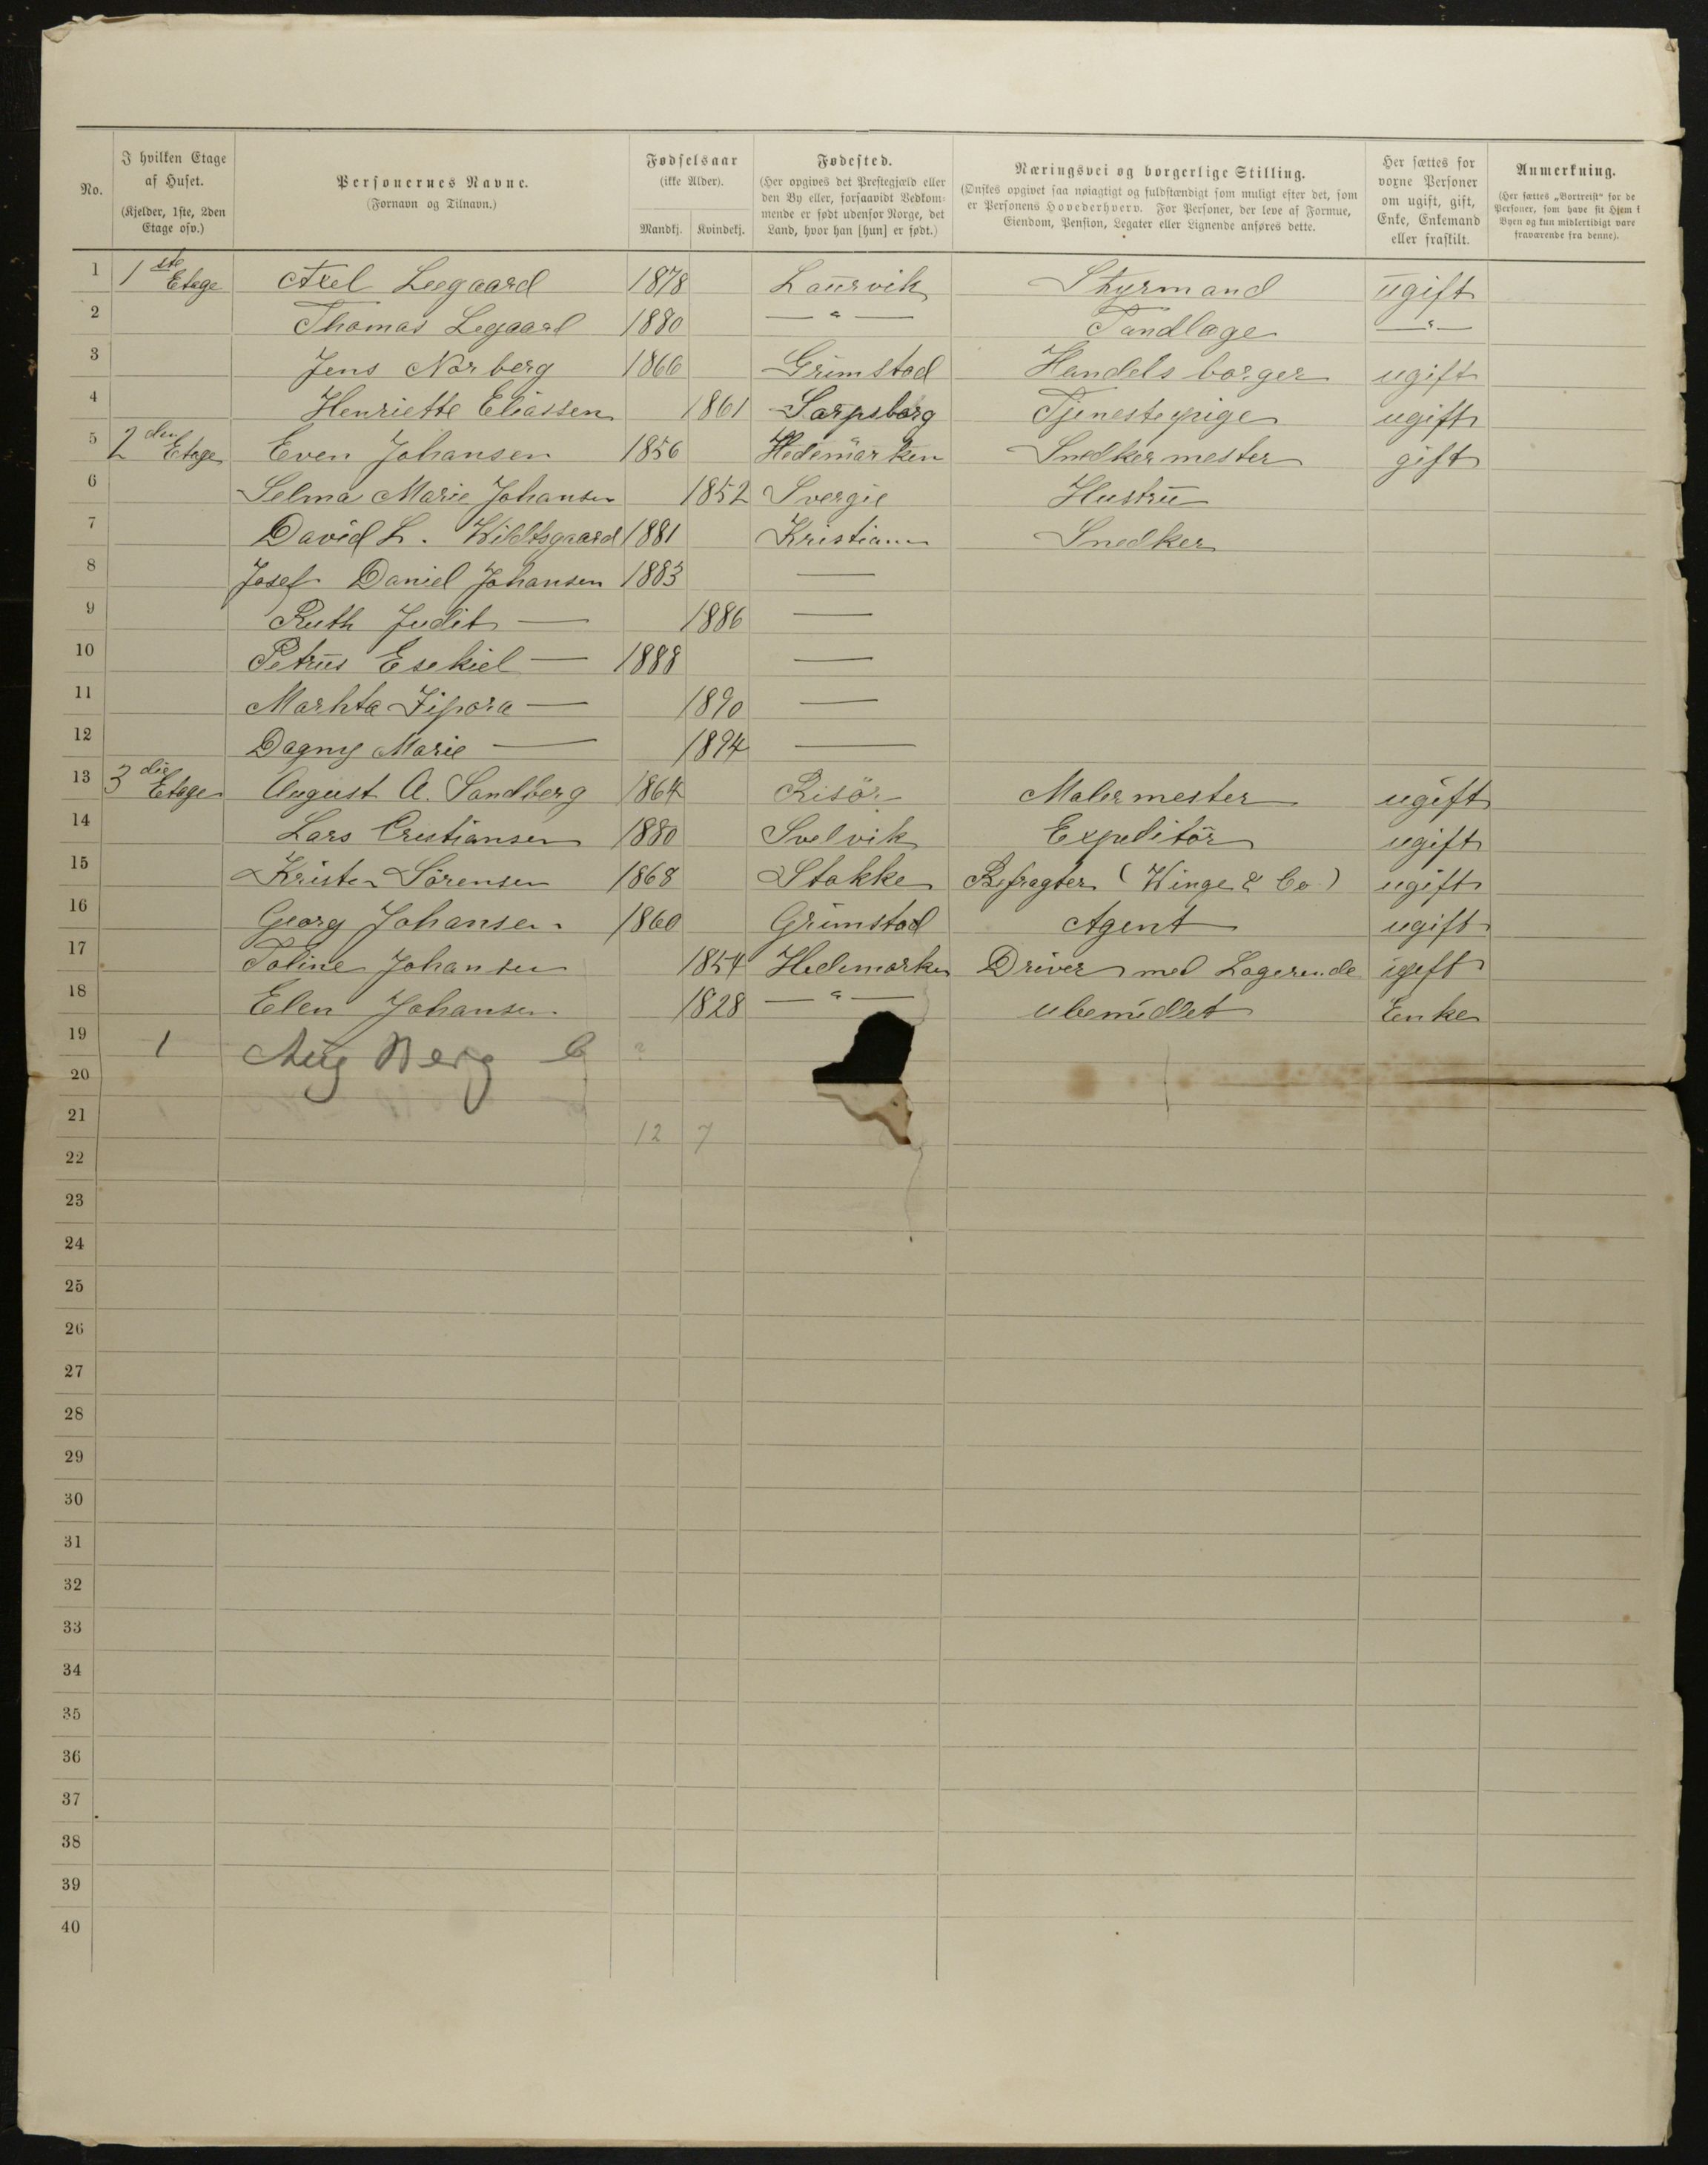 No.
I hvilken Etage af Huset. (Kjelder, 1ste, 2den Etage osv.)
Personernes Navne. (Fornavn og Tilnavn.)
Fødselsaar (ikke Alder). Mandkj. Kvindekj.
Fødested. (Her opgives det Prestegjæld eller den By eller, forsaavidt Vedkommende er født udenfor Norge, det Land, hvor han [hun] er født.)
Næringsvei og borgerlige Stilling. (Ønskes opgivet saa nøiagtigt og fuldstændigt som muligt efter det, som er Personens Hovederhverv. For Personer, der leve af Formue, Eiendom, Pension, Legater eller Lignende anføres dette.
Her sættes for voxne Personer om ugift, gift, Enke, Enkemand eller fraskilt.
Anmerkning. (Her sættes „Bortreist“ for de Personer, som have sit Hjem i Byen og kun midlertidigt vare fraværende fra denne).
1 1ste Etage Axel Leegaard 1878 Laurvik Styrmand ugift
2 Thomas Legaard 1880 — " — Tandlæge — " —
3 Jens Nörberg 1866 Grimstad Handelsborger ugift
4 Henriette Eliassen 1861 Sarpsborg Tjenestepige ugift
5 2den Etage Even Johansen 1856 Hedemarken Snedkermester gift
6 Selma Marie Johansen 1852 Svergie Hustru
7 David L. Wildtsgaard 1881 Kristiania Snedker
8 Josef Daniel Johansen 1883 —
9 Ruth Judit — 1886 —
10 Petrus Esekiel — 1888 —
11 Marhta Zipora — 1890 —
12 Dagny Marie — 1894 —
13 3die Etage August A. Sandberg 1864 Risör Malermester ugift
14 Lars Cristiansen 1880 Svelvik Expeditör ugift
15 Kristen Sörensen 1868 Stokke Befragter (Winge & Co) ugift
16 Georg Johansen 1860 Grimstad Agent ugift
17 Toline Johansen 1854 Hedemarken Driver med Logerende ugift
18 Elen Johansen 1828 — " — ubemidlet Enke
19 1 Aug Berg ?
20
21 12 7
22
23
24
25
26
27
28
29
30
31
32
33
34
35
36
37
38
39
40